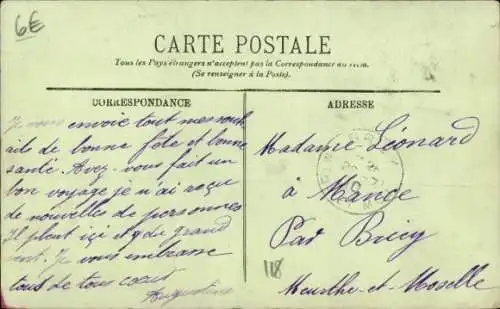 6€
CARTE POSTALE
Tous les Pays étrangers n'acceptent pas la Correspondance au recto.
(Se renseigner à la Poste).
CORRESPONDANCE
Je vous envoie tout mes souh
aits de bonne fête et bonne
santé. Avez-vous fait un
bon voyage je n'ai reçue
de nouvelles de personnes
Il pleut ici et de grand
vent. Je vous embrasse
tous de tous cœur
Augustine
ADRESSE
Madame Léonard
à Mance
Par Briey
Meurthe-et-Moselle
118